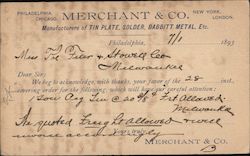 PHILADELPHIA. NEW YORK.
MERCHANT & CO.
CHICAGO. LONDON.
Manufacturers of TIN PLATE, SOLDER, BABBITT METAL, Etc.
Philadelphia, 7/1 189
Mess The Filer & Stowell Co
Milwaukee
Dear Sir:
We beg to acknowledge, with thanks, your favor of the 28 inst.
covering order for the following; which will have our careful attention:
Tin @ 20 Frt Allowed
Milwaukee
The quoted Allowed
Yours truly,
MERCHANT & CO.